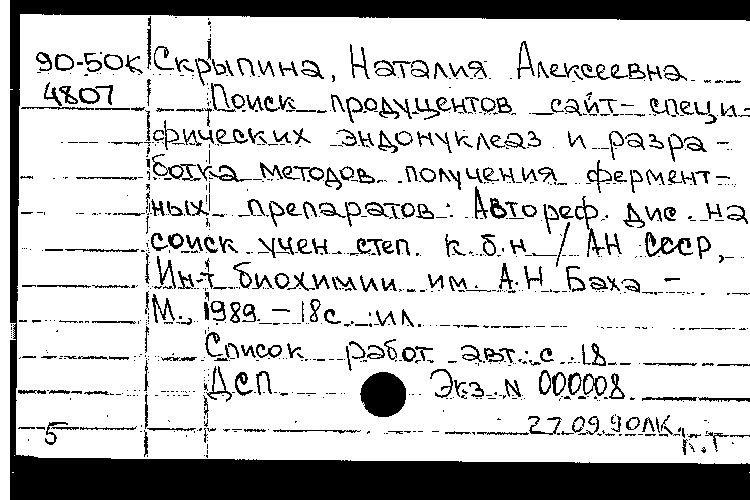 90-50К Скрыпина, Наталия Алексеевна
4807 Поиск продуцентов сайт-специ-
фических эндонуклеаз и разра-
ботка методов получения фермент-
ных препаратов: Автореф. дис. на
соиск учен степ. к.б.н / АН СССР,
Ин-т биохимии им. А.Н Баха -
М., 1989 - 18с. :ил.
Список работ авт.: с 18
ДСП Экз N 000008
27.09.90ЛК.
5 К.Т